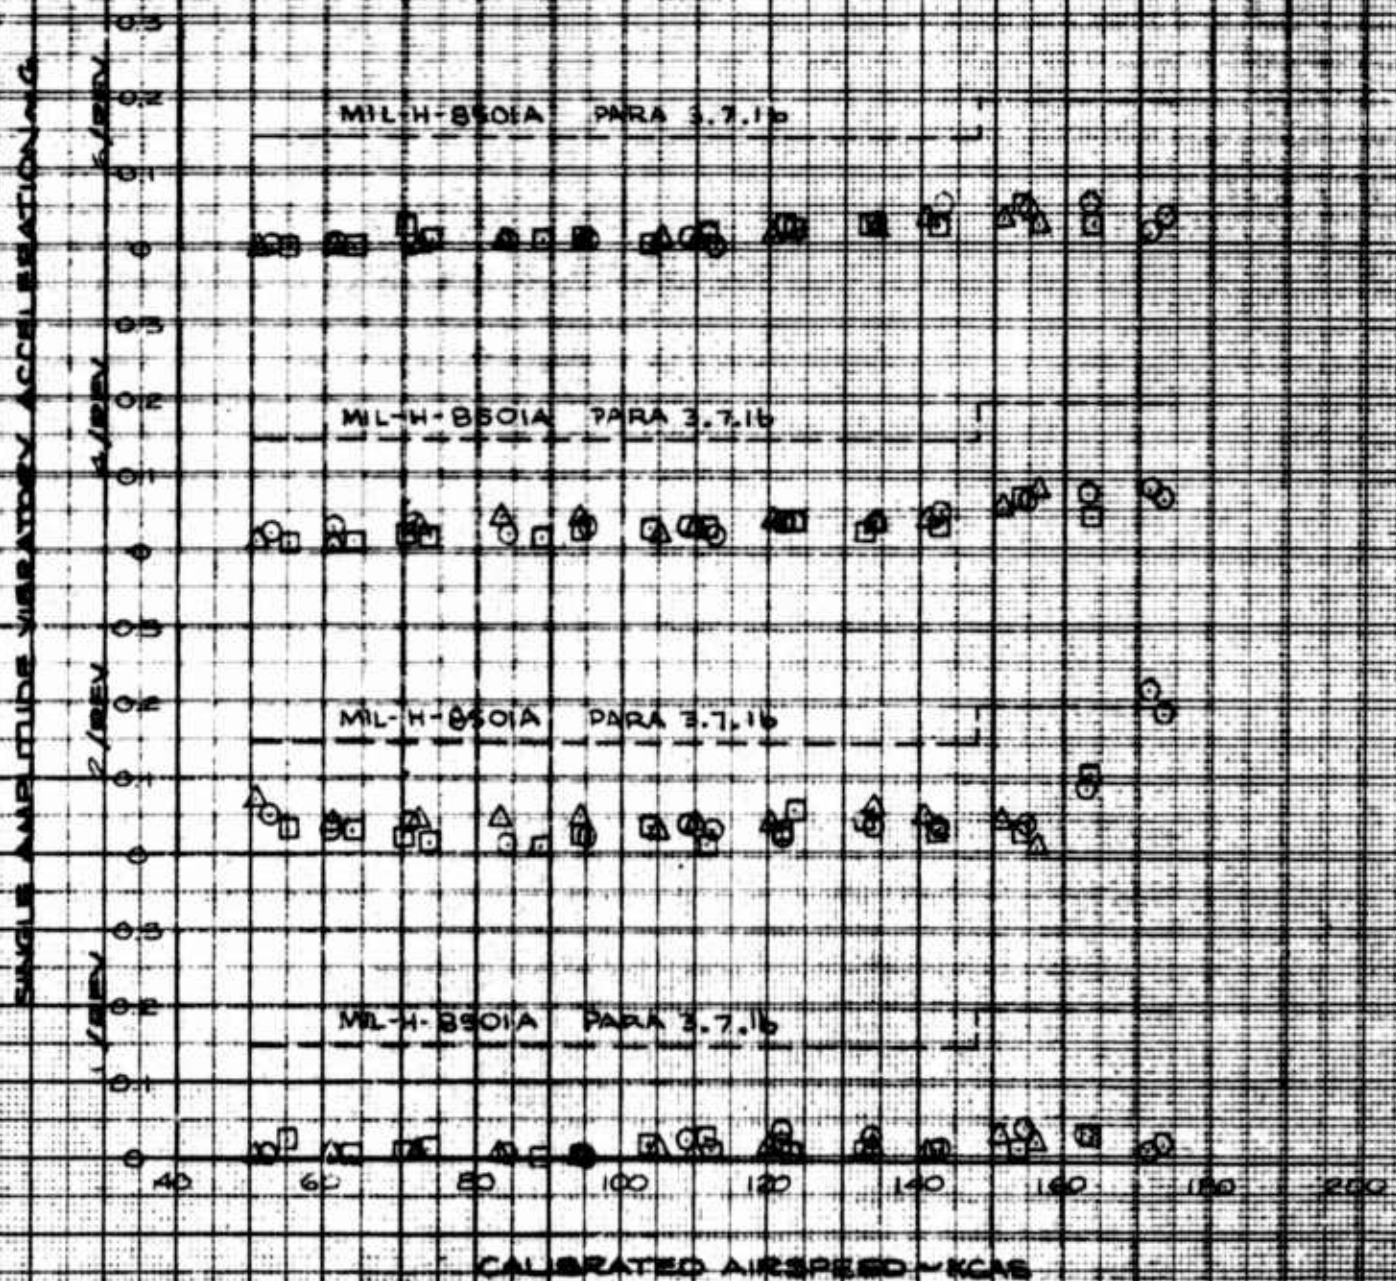 SINGLE AMPLITUDE VIBRATORY ACCELERATION ~ G
0.3
0.2
MIL-H-8501A PARA 3.7.1b
/REV
0.1
0
0.3
4/REV
0.2
MIL-H-8501A PARA 3.7.1b
0.1
0
0.3
2/REV
0.2
MIL-H-8501A PARA 3.7.1b
0.1
0
0.3
1/REV
0.2
MIL-H-8501A PARA 3.7.1b
0.1
0
40 60 80 100 120 140 160 180 200
CALIBRATED AIRSPEED ~ KCAS